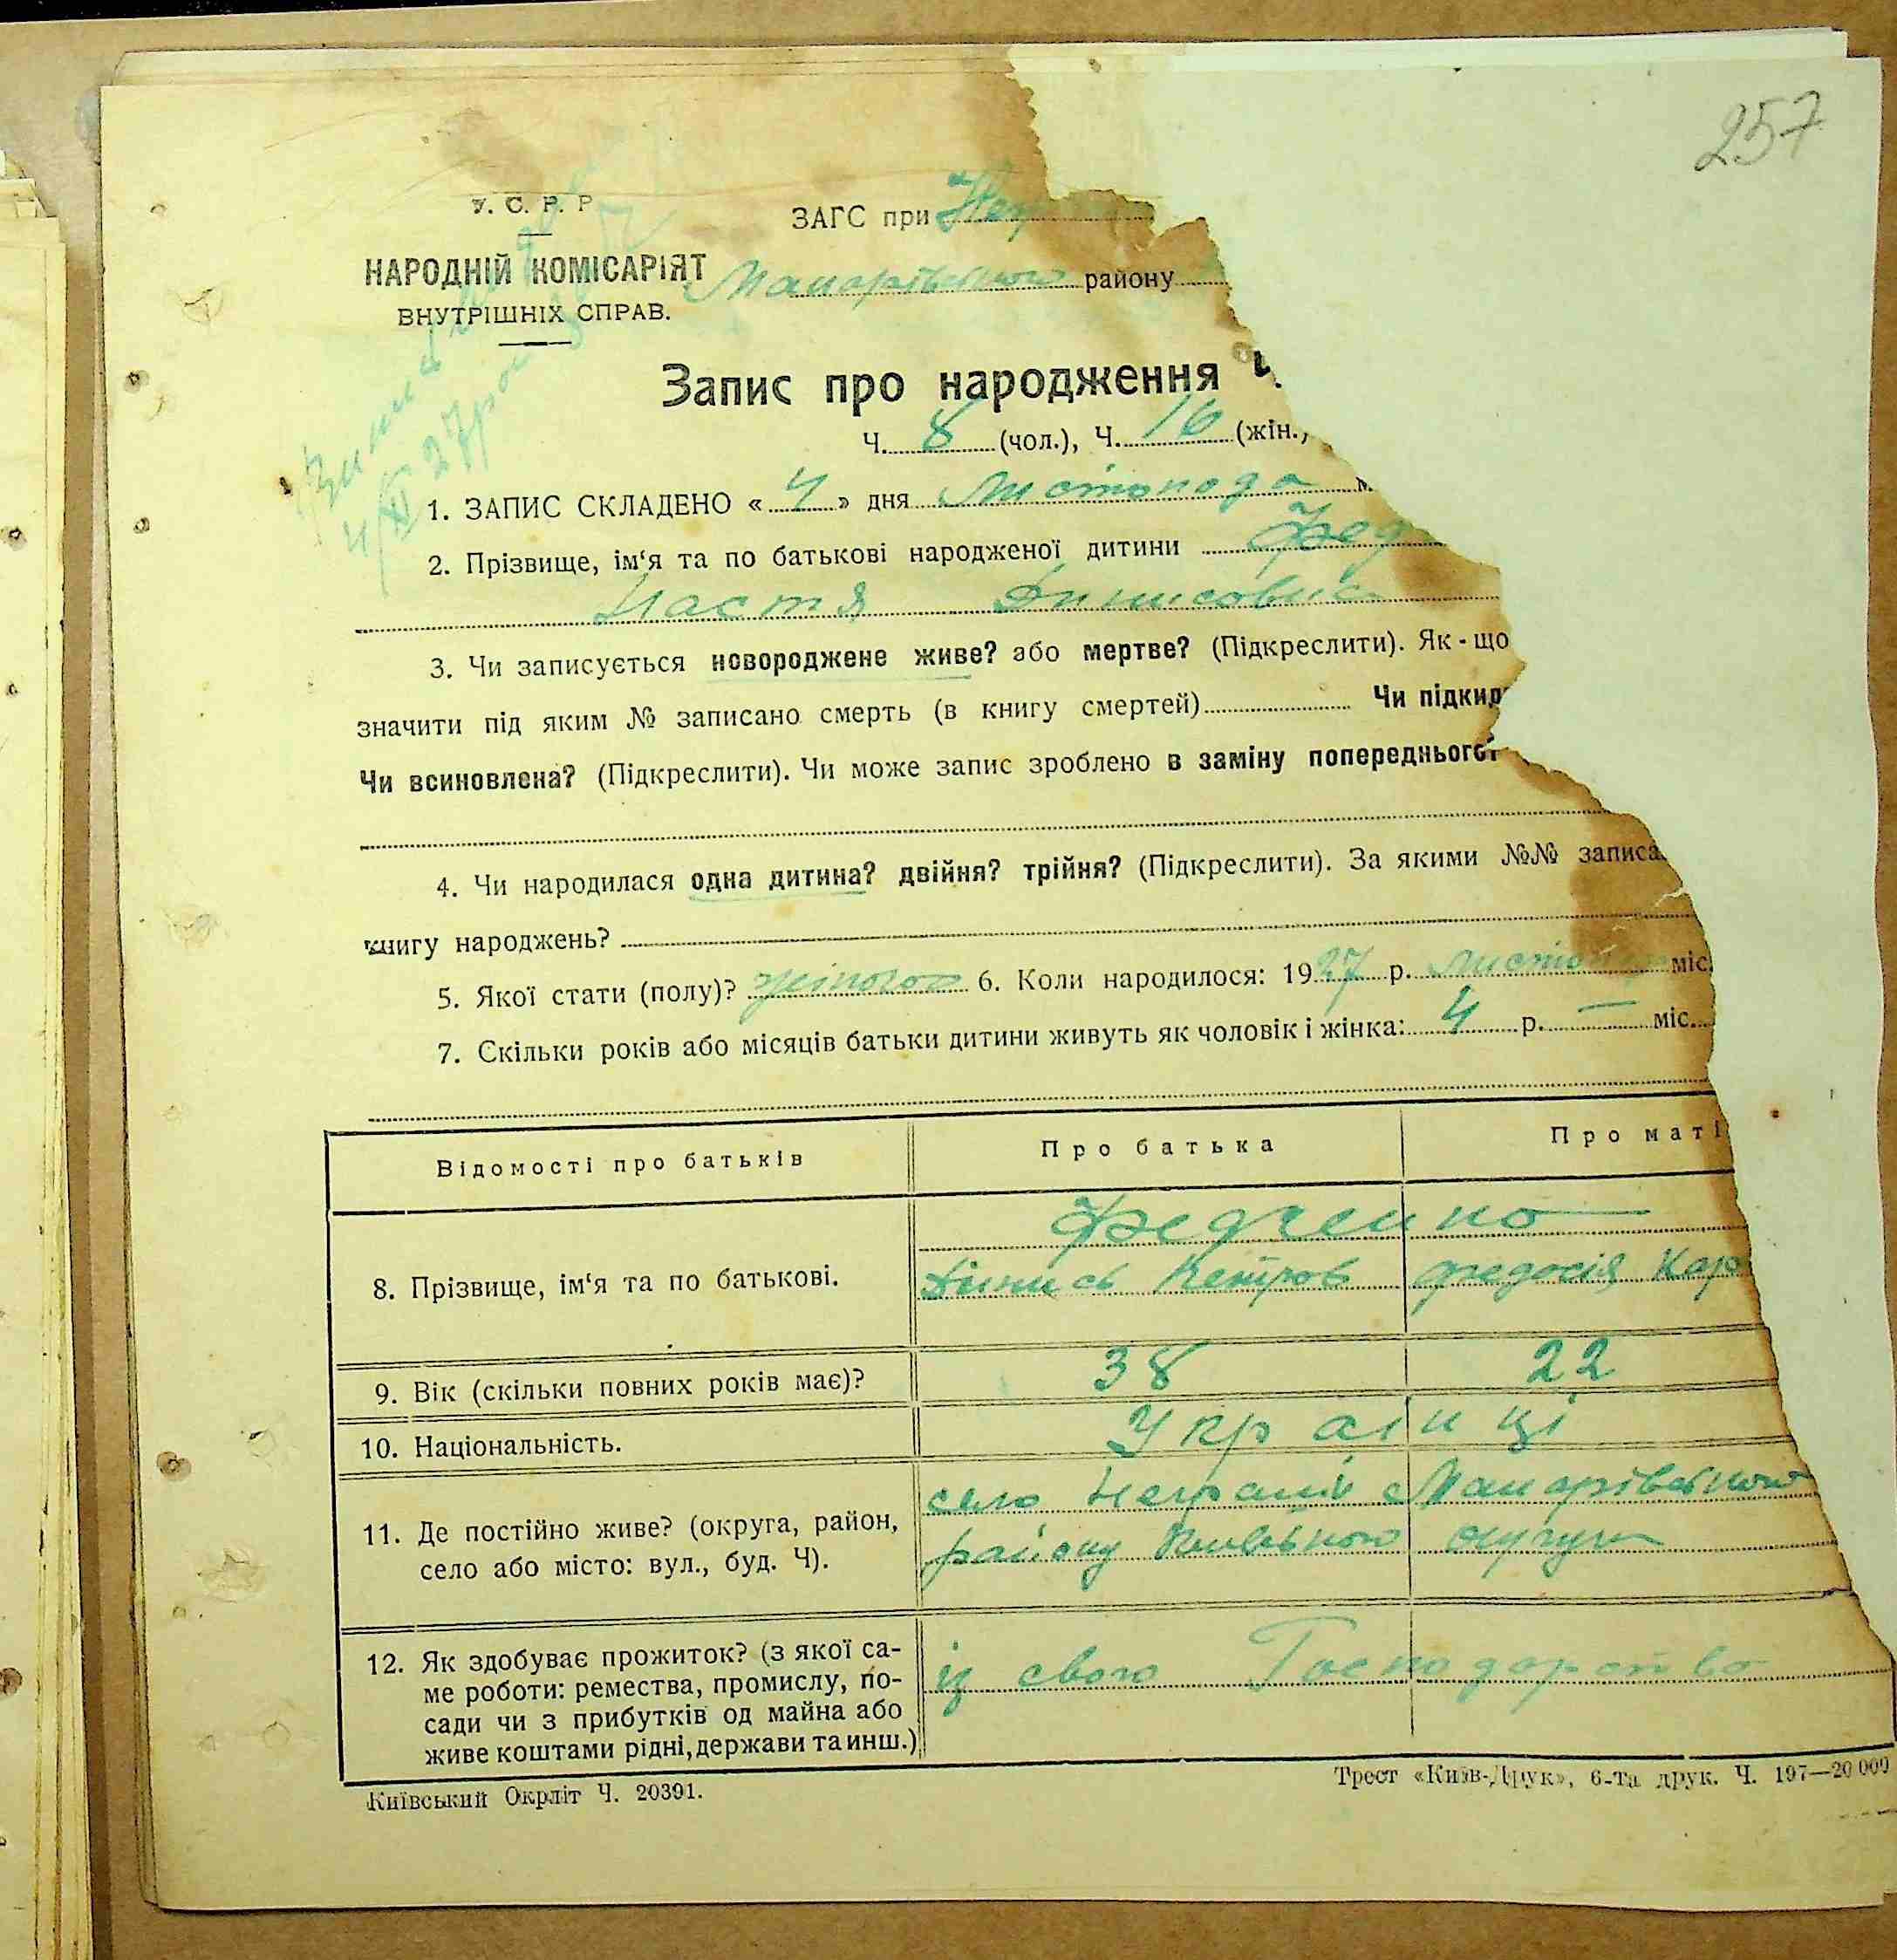 257
У. С. Р. Р
ЗАГС при
НАРОДНІЙ КОМІСАРІЯТ
Макарівського району
ВНУТРІШНІХ СПРАВ.
Запис про народження Ч.
Ч. 8 (чол.), Ч. 16 (жін.)
1. ЗАПИС СКЛАДЕНО « 4 » дня Листопада м
2. Прізвище, ім‘я та по батькові народженої дитини Фед
Настя Динисовна
3. Чи записується новороджене живе? або мертве? (Підкреслити). Як-що
значити під яким № записано смерть (в книгу смертей) Чи підкид
Чи всиновлена? (Підкреслити). Чи може запис зроблено в заміну попереднього?
4. Чи народилася одна дитина? двійня? трійня? (Підкреслити). За якими №№ записа
книгу народжень?
5. Якої стати (полу)? жіного 6. Коли народилося: 1927 р. листо міс
7. Скільки років або місяців батьки дитини живуть як чоловік і жінка: 4 р. — міс.
Відомості про батьків Про батька Про маті
Федченко
8. Прізвище, ім‘я та по батькові. Динись Петров Федосія Кар
9. Вік (скільки повних років має)? 38 22
10. Національність. Україн ці
село Макарівського
11. Де постійно живе? (округа, район, району Київського округи
село або місто: вул., буд. Ч).
12. Як здобуває прожиток? (з якої са-
ме роботи: ремества, промислу, по- із свого Господарства
сади чи з прибутків од майна або
живе коштами рідні, держави та инш.)
Київський Окрліт Ч. 20391. Трест «Київ-Друк», 6-та друк. Ч. 197—20 000